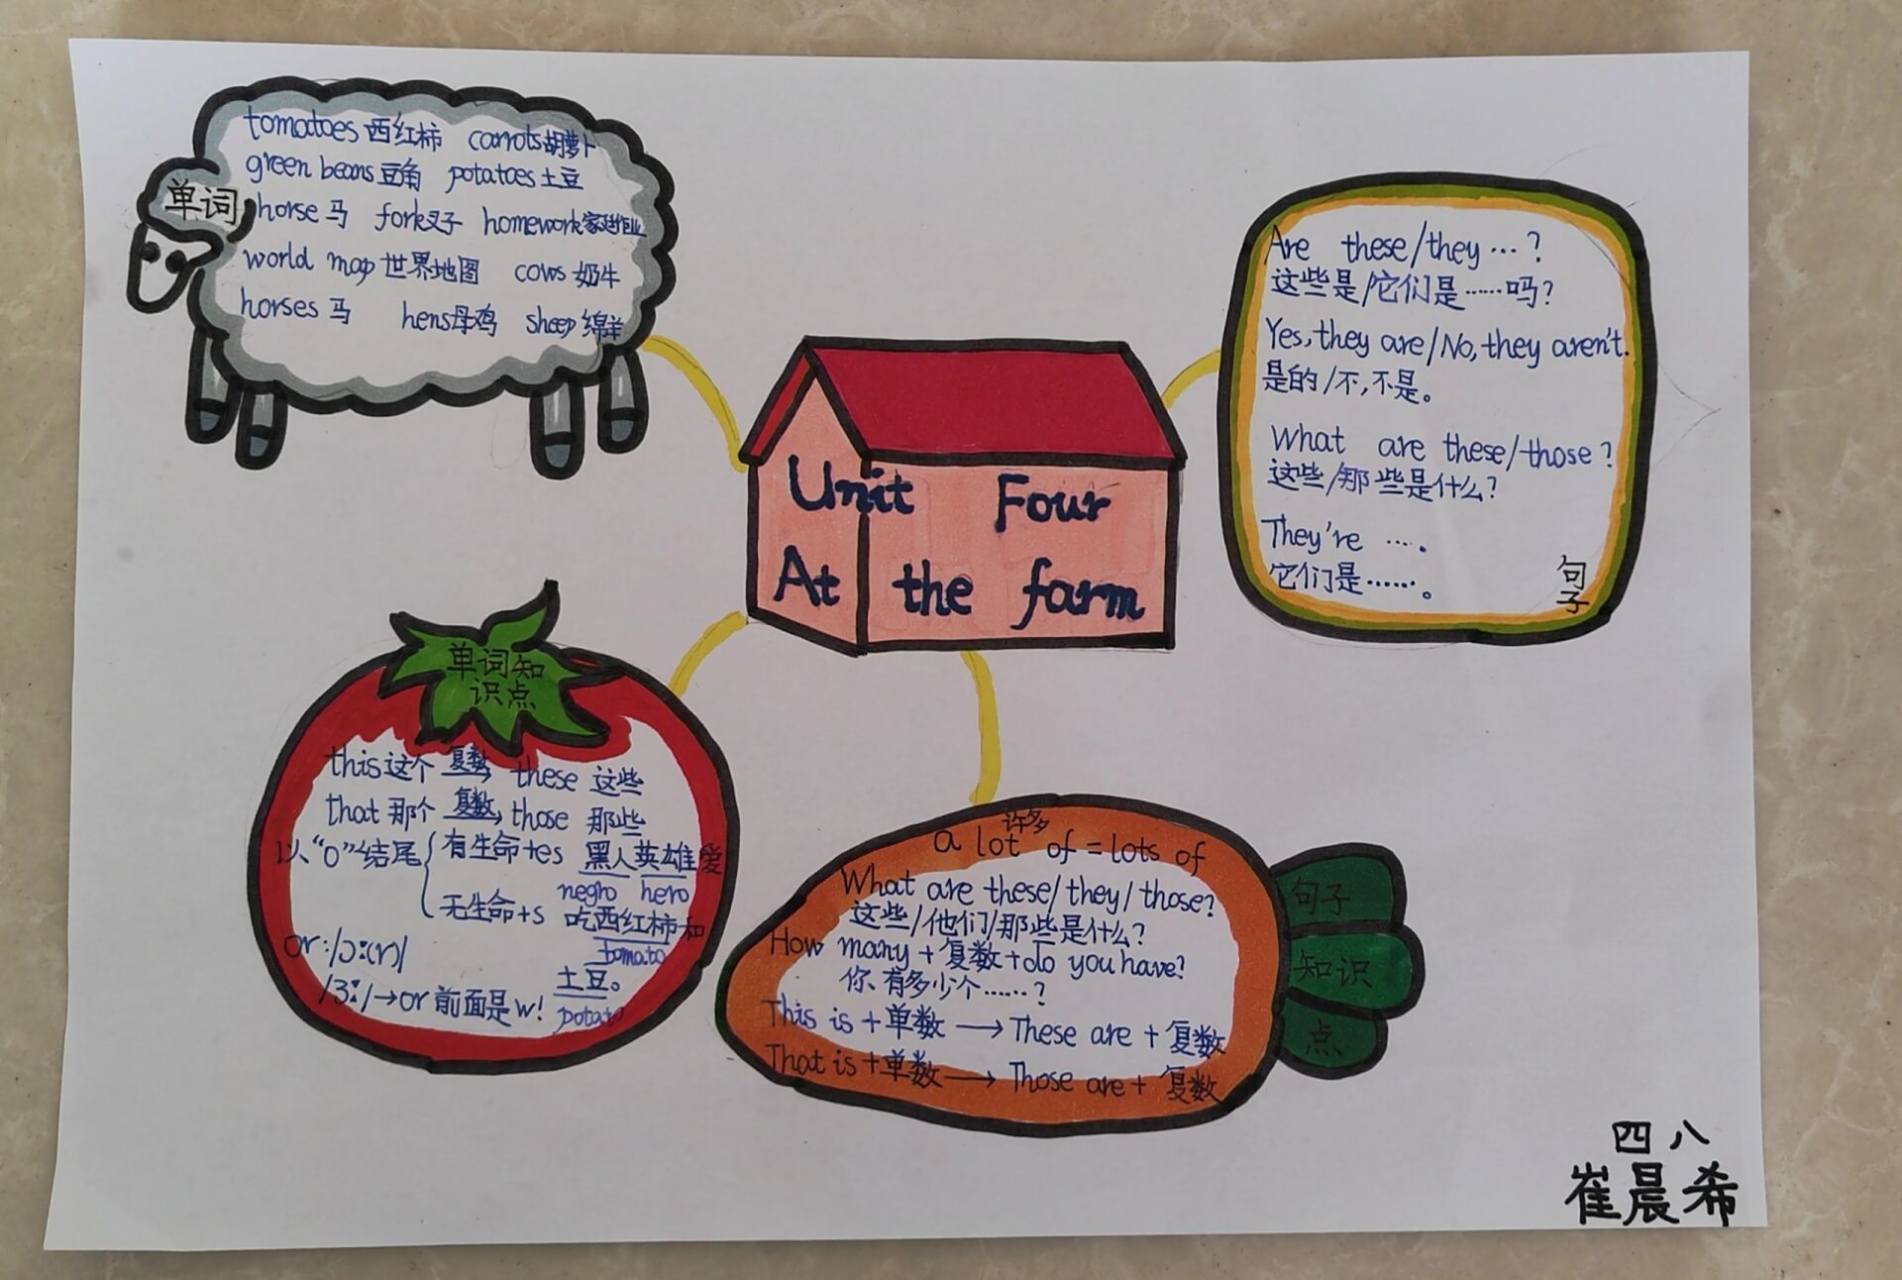 Unit Four
At the farm
单词
tomatoes 西红柿 carrots 胡萝卜
green beans 豆角 potatoes 土豆
horse 马 fork 叉子 homework 家庭作业
world map 世界地图 cows 奶牛
horses 马 hens 母鸡 sheep 绵羊
Are these/they …?
这些是/它们是……吗?
Yes, they are/No, they aren't.
是的/不,不是。
What are these/those?
这些/那些是什么?
They're ….
它们是……。
句子
单词知
识点
this 这个 复数→ these 这些
that 那个 复数→ those 那些
以“o”结尾{有生命+es 黑人英雄爱
negro hero
无生命+s 吃西红柿和
tomato
土豆。
potato
or:/ɔː(r)/
/ɜː/→or 前面是 w!
许多
a lot of = lots of
What are these/they/those?
这些/他们/那些是什么?
How many + 复数 + do you have?
你有多少个……?
This is + 单数 → These are + 复数
That is + 单数 → Those are + 复数
句子
知识
点
四八
崔晨希